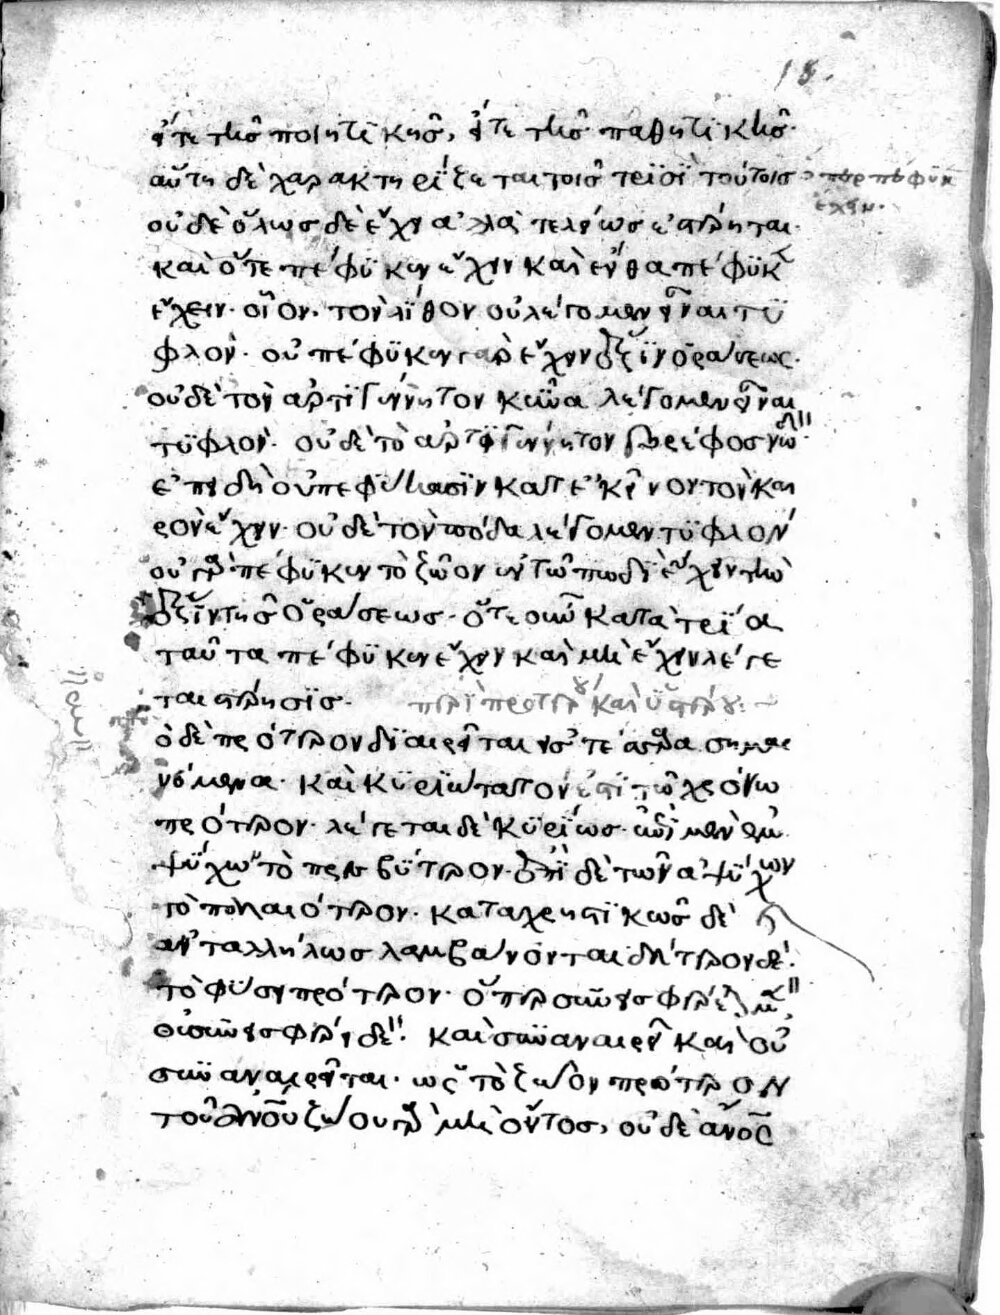 18.
εἴτε τῆς ποιητικῆς, εἴτε τῆς παθητικῆς·
αὕτη δὲ χαρακτηρίζεται τοῖς τρισὶ τούτοις
ὅπερ πέφυκεν
ἔχειν.
οὐδὲ ὅλως δὲ ἔχει ἀλλὰ τελείως ἐστέρηται·
καὶ ὅτε πέφυκεν ἔχειν καὶ ἔνθα πέφυκεν
ἔχειν· οἷον· τὸν λίθον οὐ λέγομεν εἶναι τυ
φλόν· οὐ πέφυκεν γὰρ ἔχειν ἕξιν ὁράσεως·
οὐδὲ τὸν ἀρτιγέννητον κύνα λέγομεν εἶναι
τυφλόν· οὐδὲ τὸ ἀρτιγέννητον βρέφος
ἐπειδὴ οὐ πεφύκασιν κατ' ἐκεῖνον τὸν και
ρὸν ἔχειν· οὐδὲ τὸν πόδα λέγομεν τυφλόν
οὐ γὰρ πέφυκεν τὸ ζῶον ἐν τῶ ποδὶ ἔχειν τὴν
ἕξιν τῆς ὁράσεως· ὅτε οὖν κατὰ τρία
ταῦτα πέφυκεν ἔχειν καὶ μὴ ἔχειν λέγε
ται στέρησις.
περὶ προτέρου καὶ ὑστέρου:
ὁ δὲ πρότερον διαιρεῖται εἰς τέσσαρα σημαι
νόμενα· καὶ κυριώτατον ἐστὶ τῶ χρόνω
πρότερον· λέγεται δὲ κυρίως· ἐπὶ μὲν ἐμ
ψύχων τὸ πρεσβύτερον· ἐπὶ δὲ τῶν ἀψύχων
τὸ παλαιότερον· καταχρηστικῶς δὲ
ἀνταλλήλως λαμβάνονται δεύτερον δέ·
τὸ φύσει πρότερον· ὅπερ συνεισφέρει μὲν
οὐ συνεισφέρει δέ· καὶ συναναιρεῖ καὶ οὐ
συναναιρεῖται· ὡς τὸ ζῶον πρότερον
τοῦ ἀνου ζώου γὰρ μὴ ὄντος, οὐδὲ ἄνος